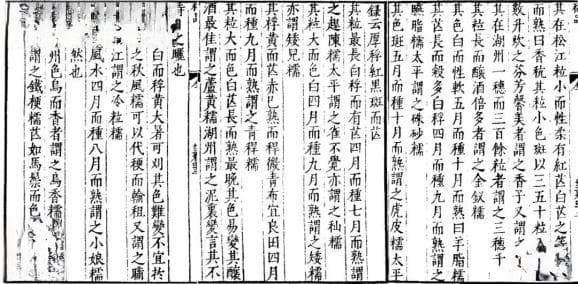 其在松江粒小而性柔有紅芒白芒
而熟曰香秔其粒小色斑以三五十粒
數升炊之芬芳馨美者謂之香子又謂之
其在湖州一穗而三百餘粒者謂之三穗千
其粒長而釀酒倍多者謂之金釵糯
其色白而性軟五月而種十月而熟曰羊脂糯
其芒長而殺多白稃四月而種九月而熟謂之
臙脂糯太平謂之硃砂糯
其色斑五月而種十月而熟謂之虎皮糯太平
錄云厚稃紅黑斑而芒
其粒最長白稃而有芒四月而種七月而熟謂
之趕陳糯太平謂之雀不覺亦謂之秈糯
其粒大而色白四月而種九月而熟謂之矮糯
亦謂矮兒糯
其稃黃而芒赤已熟而稈微青布宜良田四月
而種九月而熟謂之青稈糯
其粒大而色白芒長而熟最晚其色易變其釀
酒最佳謂之蘆黃糯湖州謂之泥裏變言其不
待日之曬也
白而稃黃大暑可刈其色難變不宜於
之秋風糯可以代粳而輸租又謂之瞞
江謂之冷粒糯
風水四月而種八月而熟謂之小娘糯
然也
州色烏而香者謂之烏香糯
謂之鐵粳糯芒如馬鬃而色